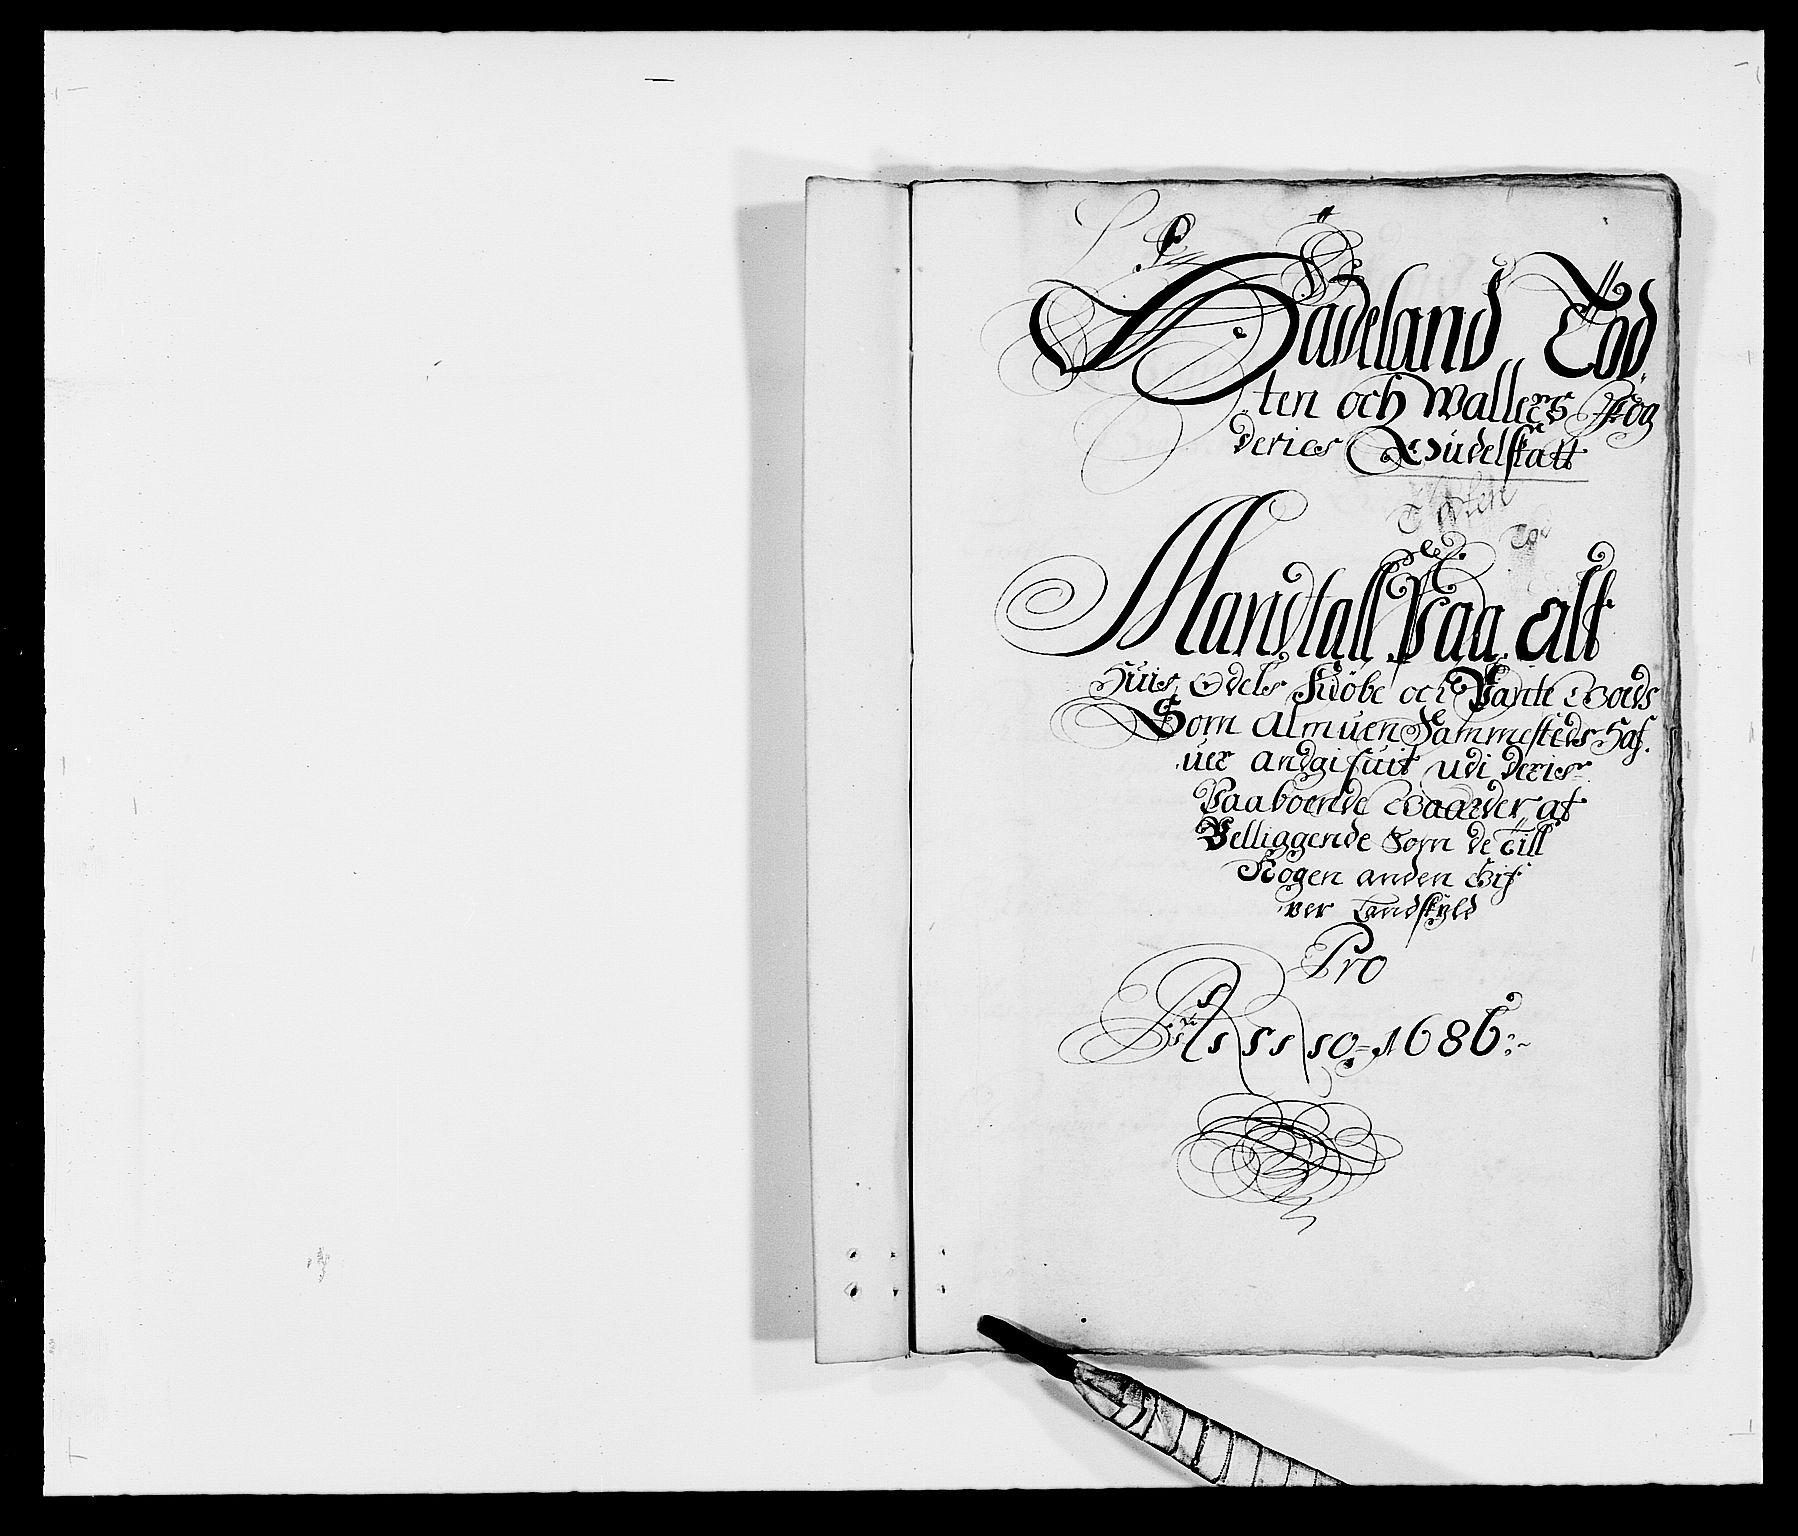 Hadeland Tod
ten och Wallers Fog
deries Oudelskatt
Mandtall Paa alt
Huis Odels Kiöbe och Pante Goeds
Som Almuen Sammesteds Haf
uer andgifuit udi deris
Paaboende Gaarder at
Velliggende Som de Till
Nogen anden Gif
ver Landskyld
Pro
Anno 1686